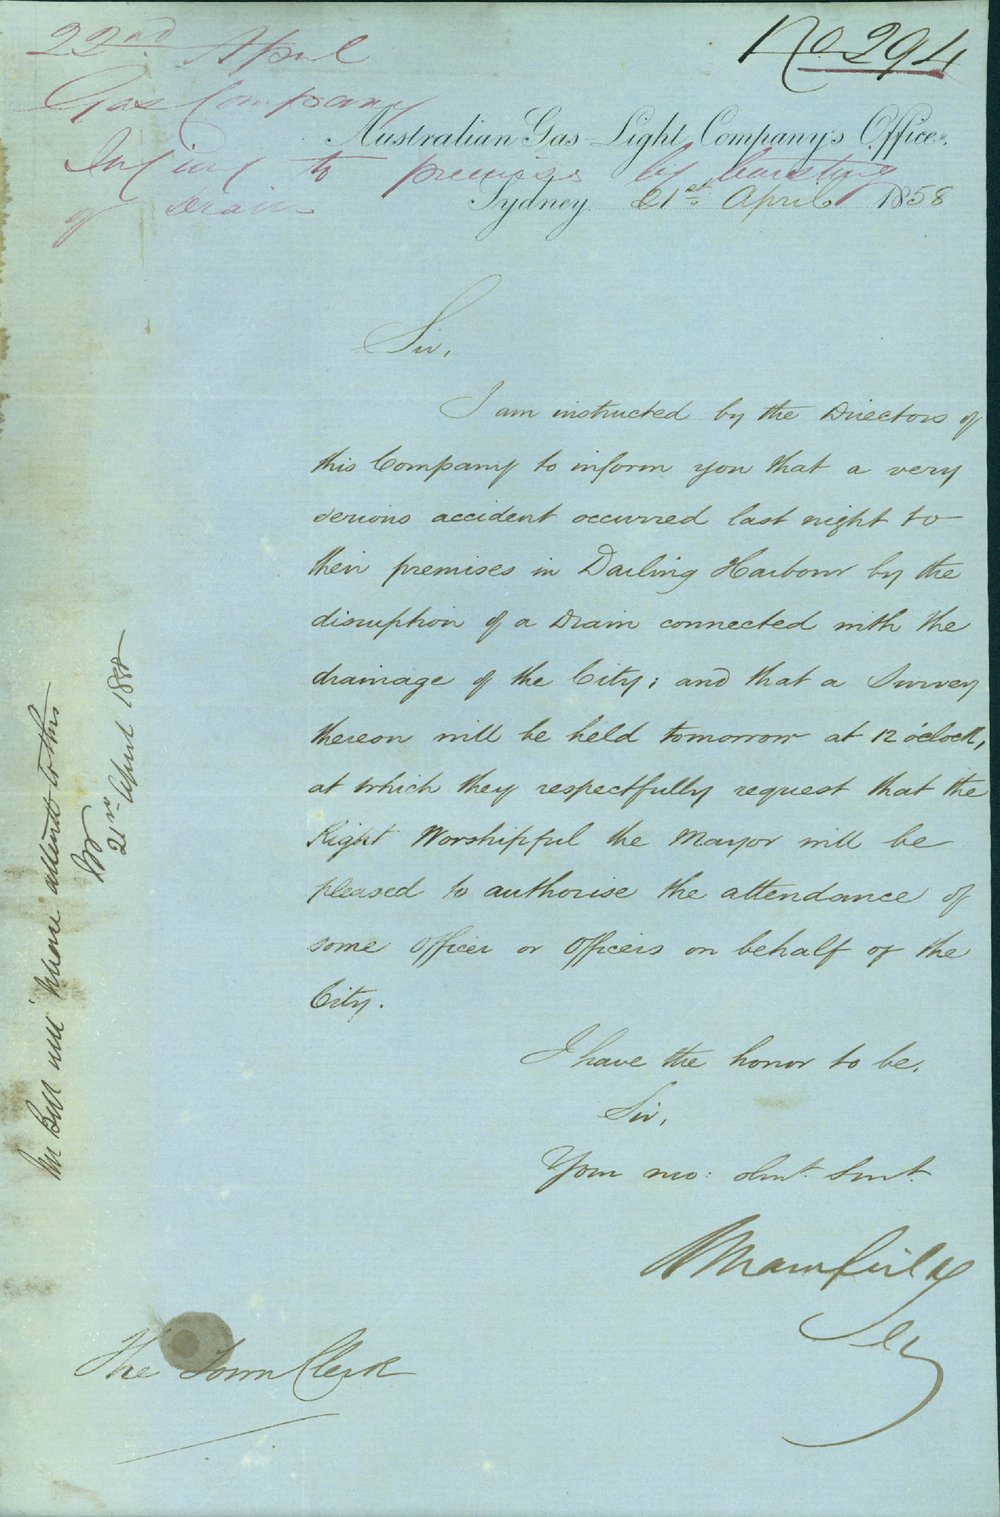 No 294
22nd April
Gas Company
Injury to premises by bursting
of Drain
Australian Gas Light Company's Office.
Sydney 21st April 1858
Sir,
I am instructed by the Directors of
this Company to inform you that a very
serious accident occurred last night to
their premises in Darling Harbour by the
disruption of a Drain connected with the
drainage of the City; and that a Survey
thereon will be held tomorrow at 12 o'clock,
at which they respectfully request that the
Right Worshipful the Mayor will be
pleased to authorise the attendance of
some Officer or Officers on behalf of the
City.
I have the honor to be.
Sir,
Your mo: obnt. Servt.
Mansfield
Secy
The Town Clerk
Mr Bell will please attend to this
21st April 1858